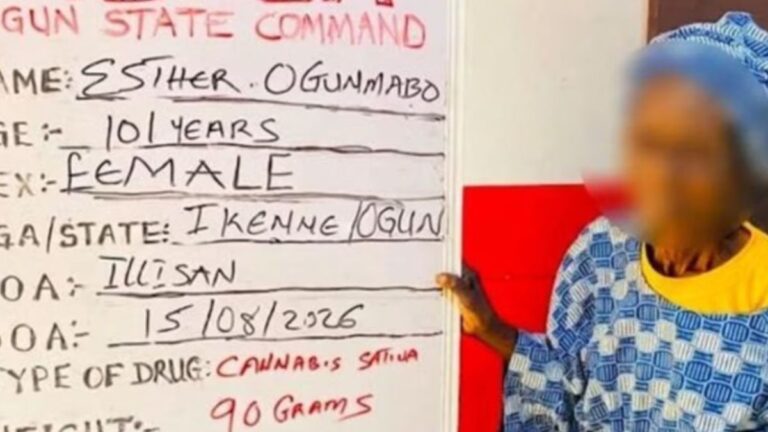 GUN STATE COMMAND
AME: ESTHER. OGUNMABO
GE :- 101 YEARS
EX:- FEMALE
GA/STATE: IKENNE/OGUN
OA:- ILLISAN
OA:- 15/08/2026
TYPE OF DRUG: CANNABIS SATIVA
90 GRAMS